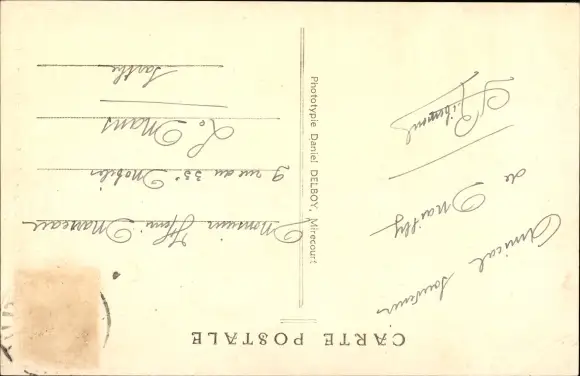 CARTE POSTALE
Amical souvenir
de Mailly
Phototypie Daniel DELBOY, Mirecourt
Monsieur Henri
9 rue du 33e Mobiles
Le Mans
Sarthe